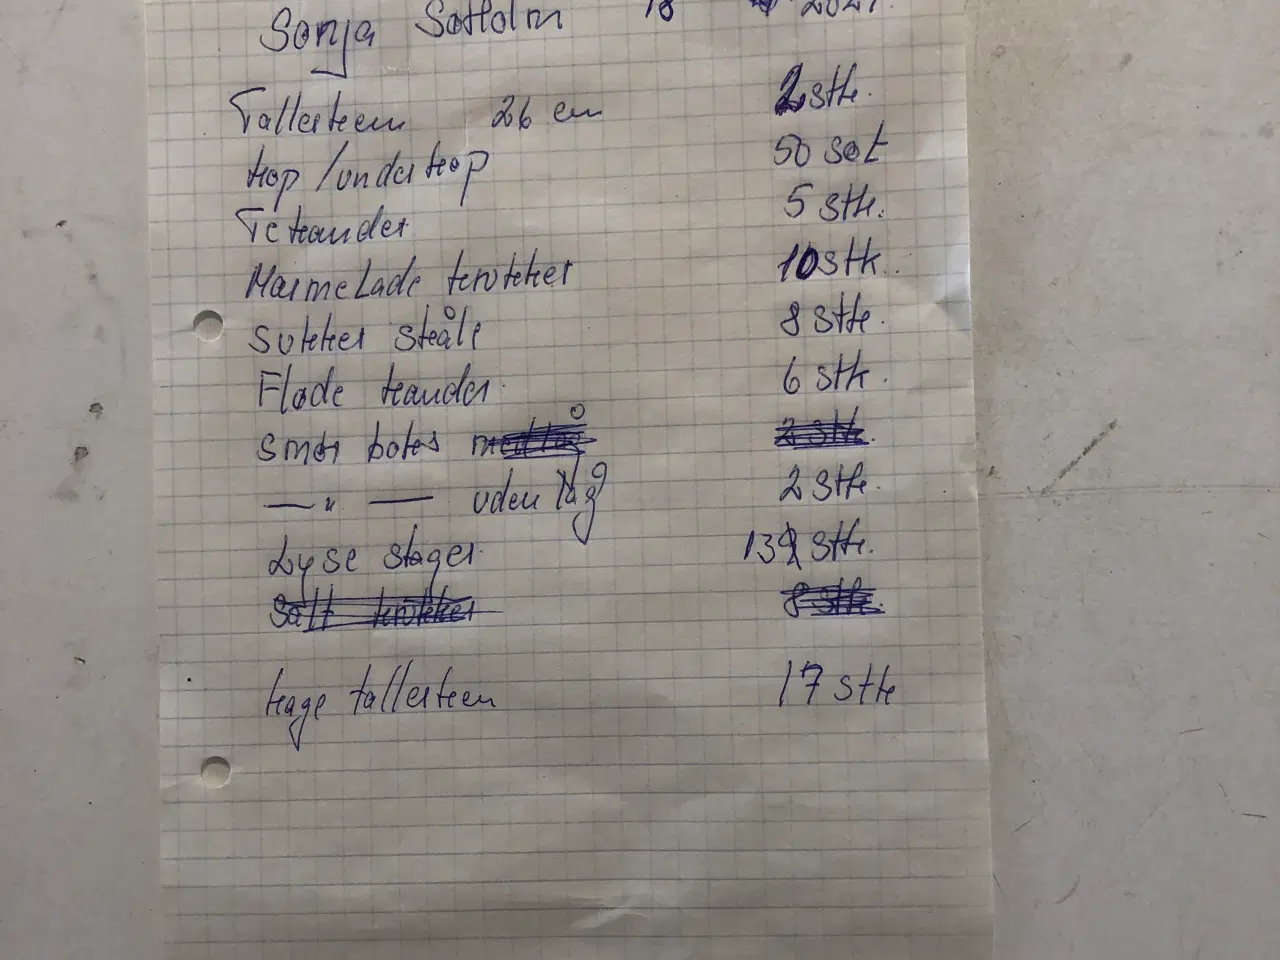 Sonja Søholm 18 2021.
Tallerkken 26 cm 2 stk.
kop/underkop 50 sæt
Te kander 5 stk.
Marmelade krukker 10 stk.
Sukker skåle 8 stk.
Fløde kander. 6 stk.
Smør potes med låg 2 stk.
—"— uden låg 2 stk.
Lyse stager. 132 stk.
Salt krukker 8 stk.
kage tallerkken 17 stk